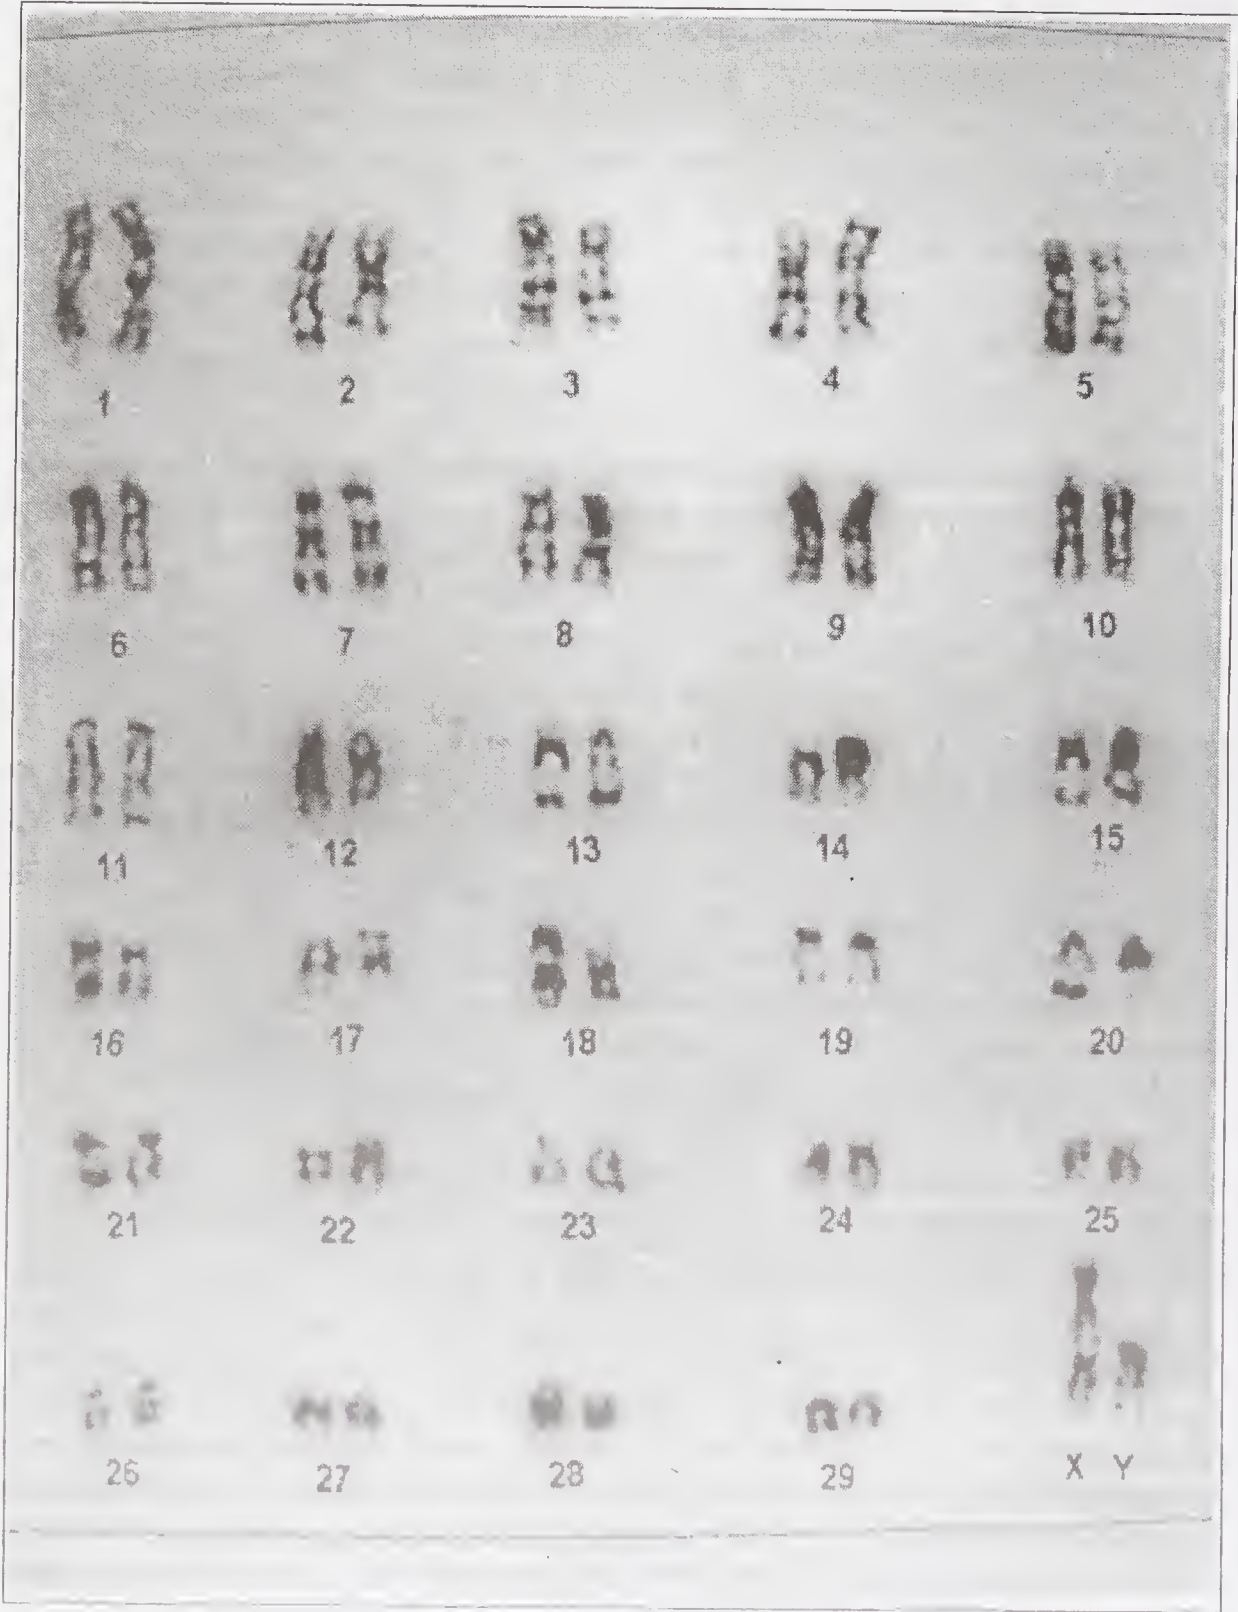 1 2 3 4 5
6 7 8 9 10
11 12 13 14 15
16 17 18 19 20
21 22 23 24 25
26 27 28 29 X Y